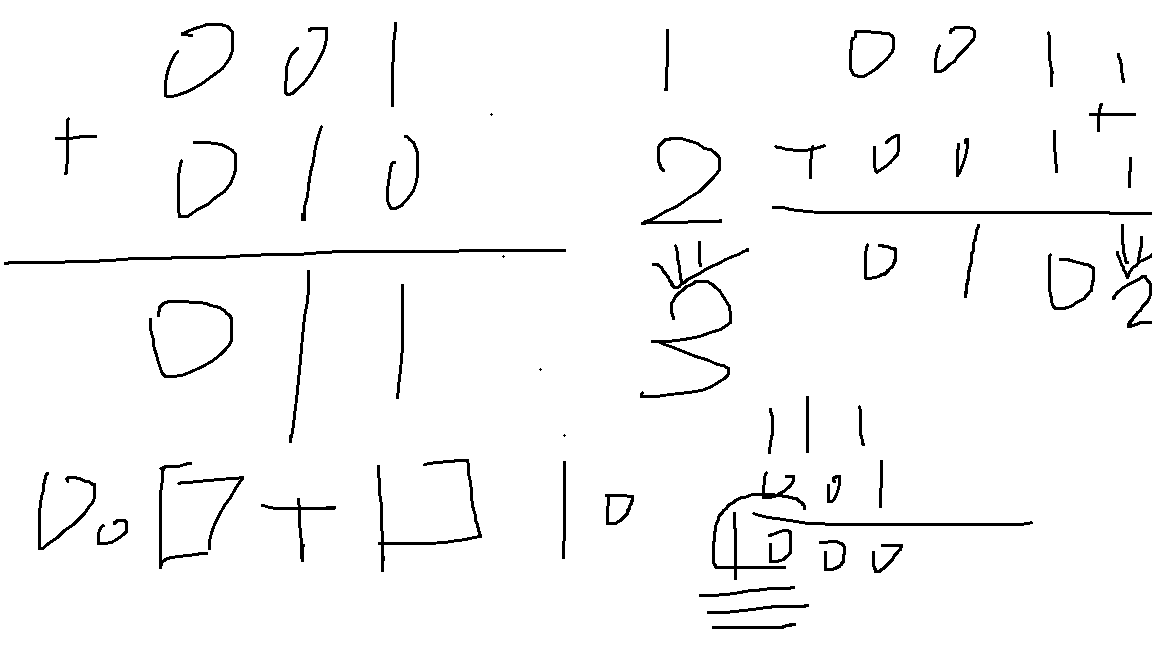 0 0 1
+ 0 1 0
0 1 1
1
2
3
0 0 1 1
+ 0 0 1 + 1
0 1 0 2
1 1 1
0 0 1
1 0 0 0
+ 1 0